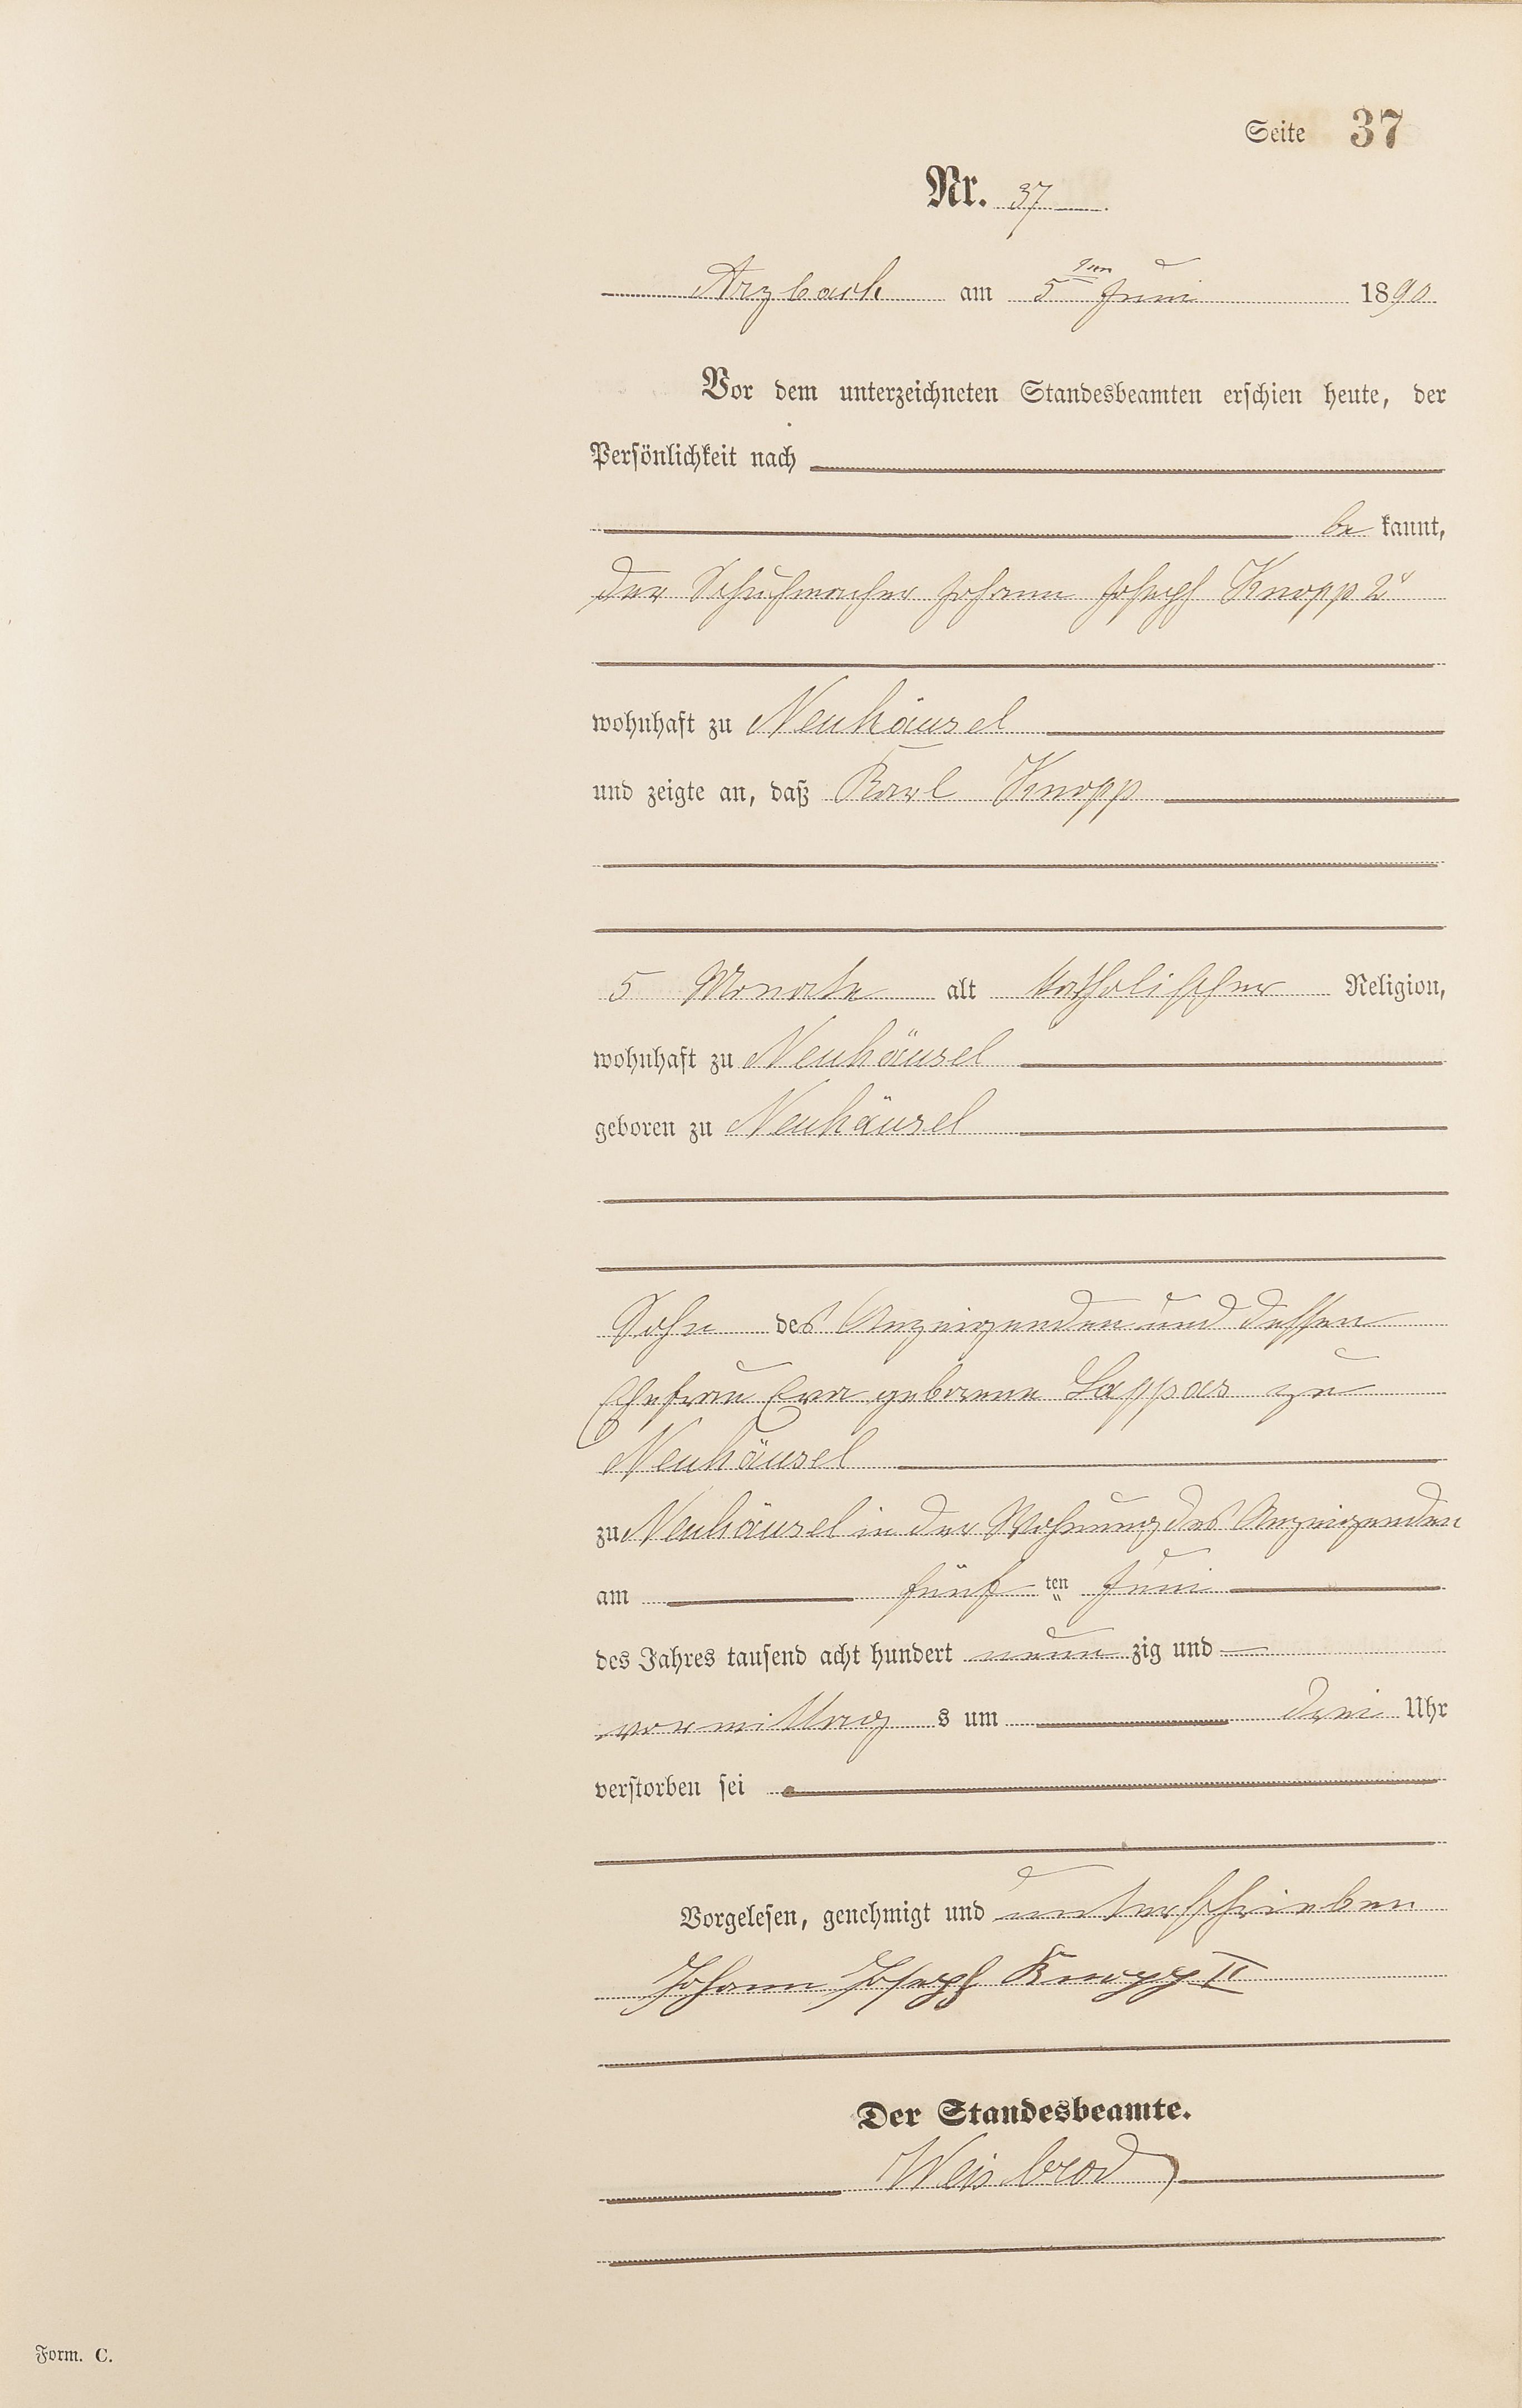 Seite 37
Nr. 37
Arzbach am 5ten Juni 1890
Vor dem unterzeichneten Standesbeamten erschien heute, der
Persönlichkeit nach
be kannt,
der Schuhmacher Johann Joseph Knopp 2r
wohnhaft zu Neuhäusel
und zeigte an, daß Karl Knopp
5 Monate alt katholischer Religion,
wohnhaft zu Neuhäusel
geboren zu Neuhäusel
Sohn des Anzeigenden und dessen
Ehefrau Eva geborene Lappas zu
Neuhäusel
zu Neuhäusel in der Wohnung des Anzeigenden
am fünf ten Juni
des Jahres tausend acht hundert neun zig und
vormittag s um drei Uhr
verstorben sei
Vorgelesen, genehmigt und unterschrieben
Johann Joseph Knopp II
Der Standesbeamte.
Weisbrod
Form. C.